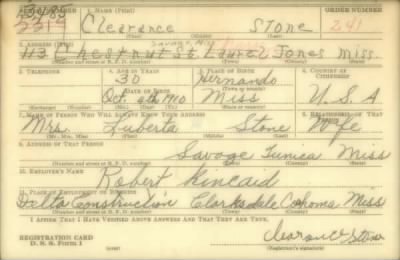 1. NAME (Print) ORDER NUMBER
Clearance Stone 241
2. ADDRESS (Print)
Savage, Miss
113 Chestnut St. Laurel Jones Miss.
3. TELEPHONE 4. AGE IN YEARS 5. PLACE OF BIRTH 6. COUNTRY OF CITIZENSHIP
30 Hernando
DATE OF BIRTH (Town or county)
Oct. 4th 1910 Miss U.S.A
(Exchange) (Number) (Mo.) (Day) (Yr.) (State or country)
7. NAME OF PERSON WHO WILL ALWAYS KNOW YOUR ADDRESS 8. RELATIONSHIP OF THAT PERSON
Mrs. Luberta Stone Wife
(Mr., Mrs., Miss) (First) (Middle) (Last)
9. ADDRESS OF THAT PERSON
Savage Tunica Miss
(Number and street or R. F. D. number) (Town) (County) (State)
10. EMPLOYER'S NAME
Robert Kincaid
11. PLACE OF EMPLOYMENT OR BUSINESS
Delta Construction Clarksdale Coahoma Miss
(Number and street or R. F. D. number) (Town) (County) (State)
I AFFIRM THAT I HAVE VERIFIED ABOVE ANSWERS AND THAT THEY ARE TRUE.
REGISTRATION CARD
D. S. S. Form 1 (over) Clearance Stone
(Registrant's signature)